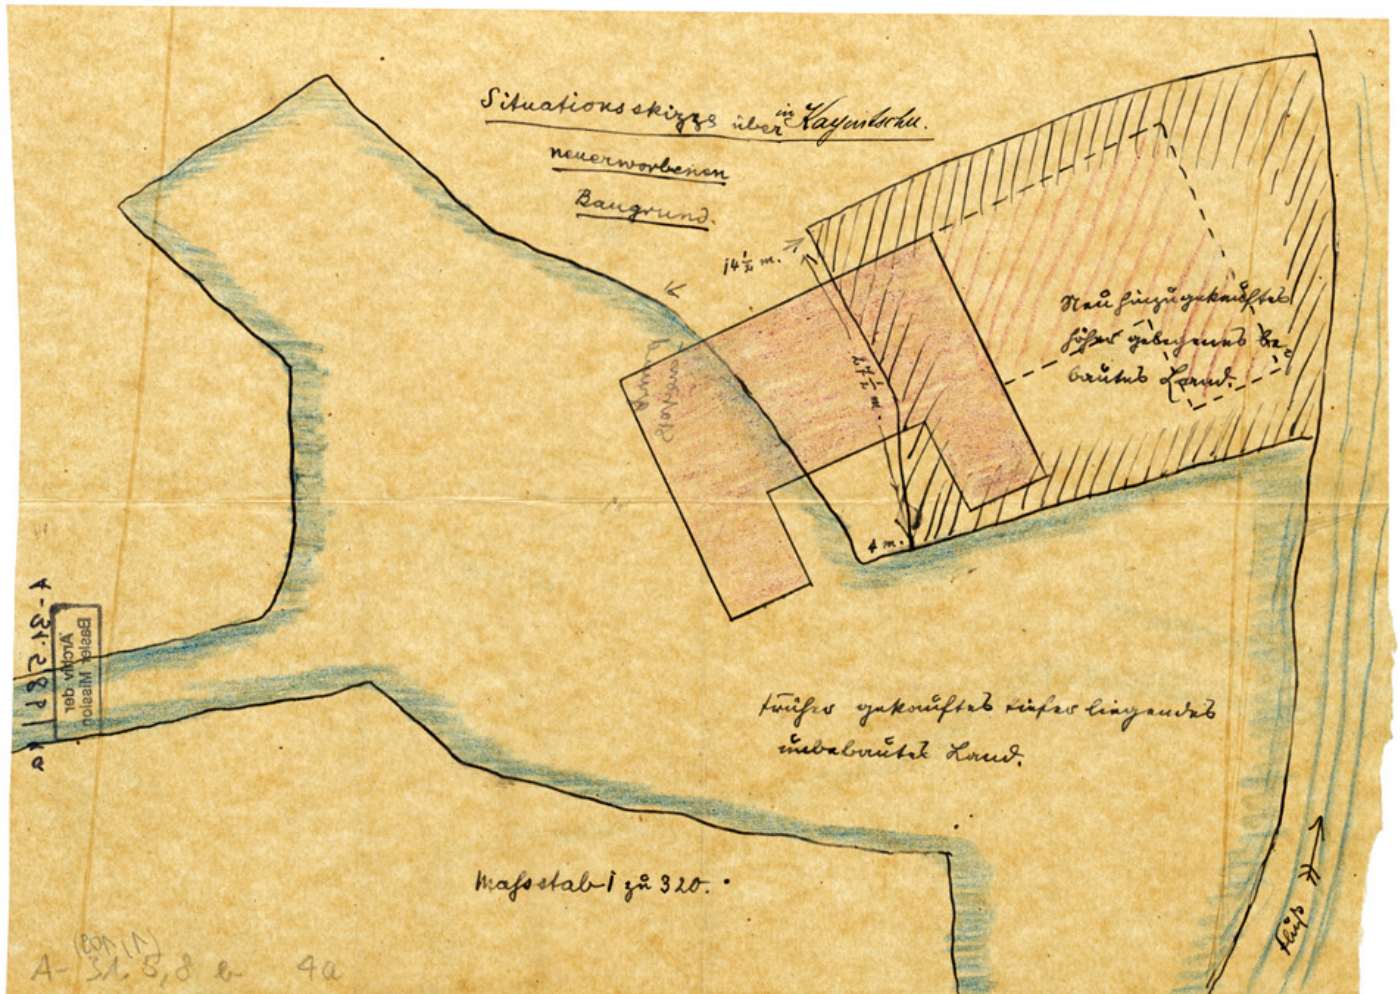 Situationsskizze über in Kayintschu.
neuerworbenen
Baugrund.
14 1/2 m.
27 1/2 m.
4 m.
Neu hinzugekauftes
höher gelegenes be-
bautes Land.
früher gekauftes tiefer liegendes
unbebautes Land.
Massstab 1 zu 320.
Fluß
Basler Mission
Archiv der
A-31.5,8 b 4a